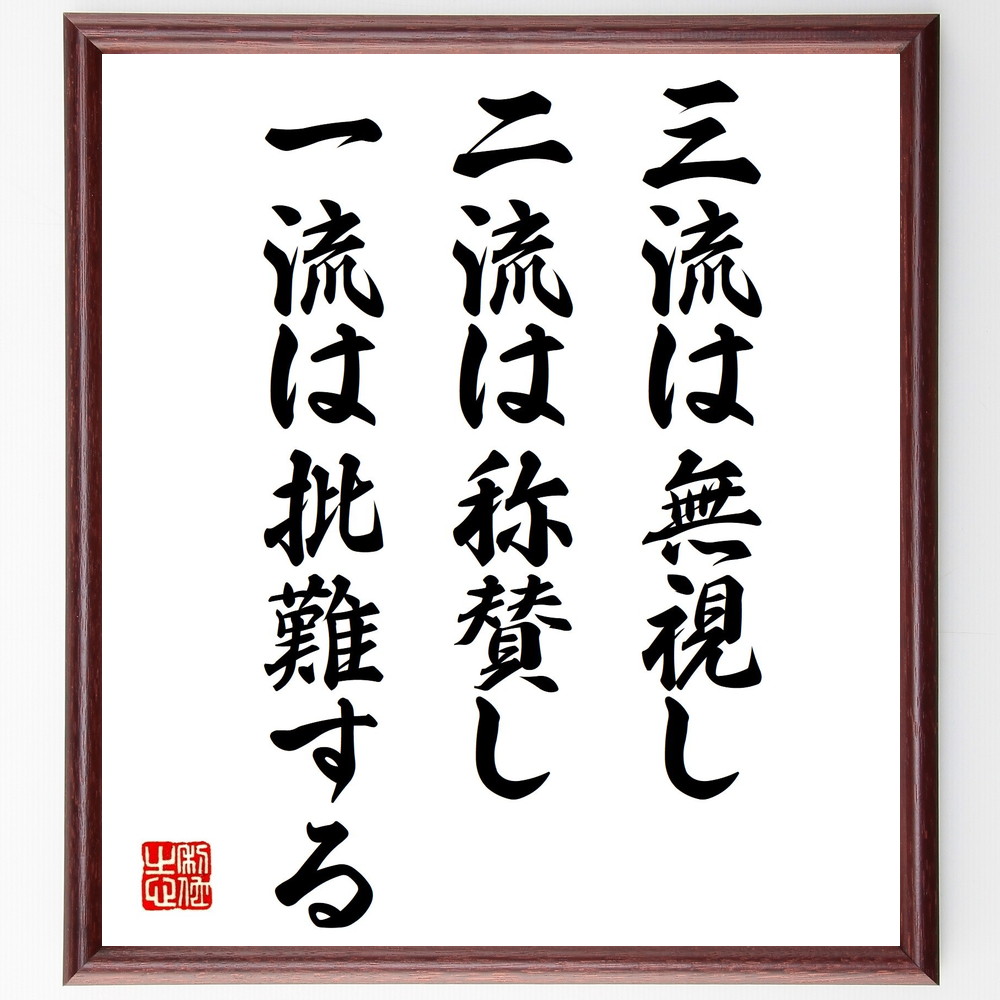 三流は無視し
二流は称賛し
一流は批難する